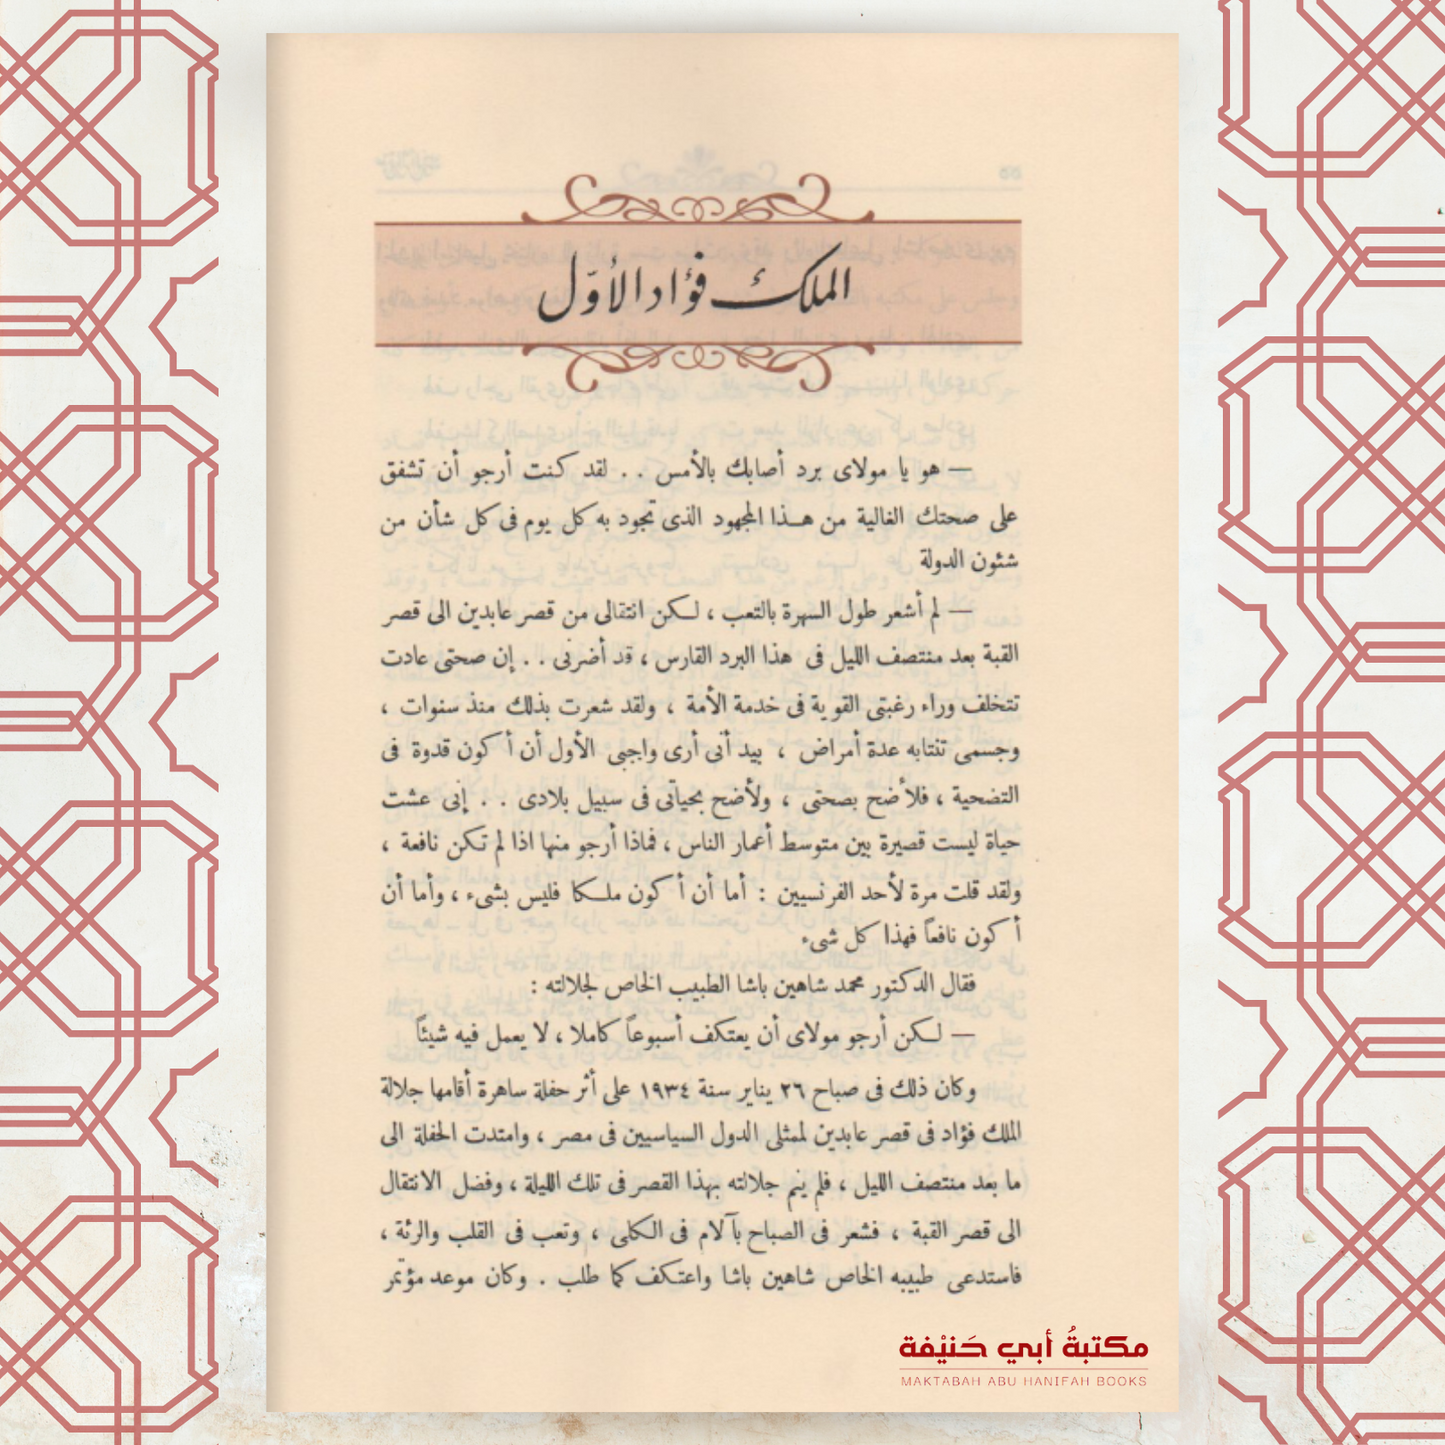 الملك فؤاد الأوّل
— هو يا مولاى برد أصابك بالأمس . . لقد كنت أرجو أن تشفق
على صحتك الغالية من هذا المجهود الذى تجود به كل يوم فى كل شأن من
شئون الدولة
— لم أشعر طول السهرة بالتعب ، لكن انتقالى من قصر عابدين الى قصر
القبة بعد منتصف الليل فى هذا البرد القارس ، قد أضرنى . . إن صحتى عادت
تتخلف وراء رغبتى القوية فى خدمة الأمة ، ولقد شعرت بذلك منذ سنوات ،
وجسمى تنتابه عدة أمراض ، بيد أنى أرى واجبى الأول أن أكون قدوة فى
التضحية ، فلأضح بصحتى ، ولأضح بحياتى فى سبيل بلادى . . إنى عشت
حياة ليست قصيرة بين متوسط أعمار الناس ، فماذا أرجو منها اذا لم تكن نافعة ،
ولقد قلت مرة لأحد الفرنسيين : أما أن أكون ملكا فليس بشىء ، وأما أن
أكون نافعاً فهذا كل شىء
فقال الدكتور محمد شاهين باشا الطبيب الخاص لجلالته :
— لكن أرجو مولاى أن يعتكف أسبوعاً كاملا ، لا يعمل فيه شيئاً
وكان ذلك فى صباح ٢٦ يناير سنة ١٩٣٤ على أثر حفلة ساهرة أقامها جلالة
الملك فؤاد فى قصر عابدين لممثلى الدول السياسيين فى مصر ، وامتدت الحفلة الى
ما بعد منتصف الليل ، فلم ينم جلالته بهذا القصر فى تلك الليلة ، وفضل الانتقال
الى قصر القبة ، فشعر فى الصباح بآلام فى الكلى ، وتعب فى القلب والرئة ،
فاستدعى طبيبه الخاص شاهين باشا واعتكف كما طلب . وكان موعد مؤتمر
مكتبةُ أبي حَنيْفة
MAKTABAH ABU HANIFAH BOOKS